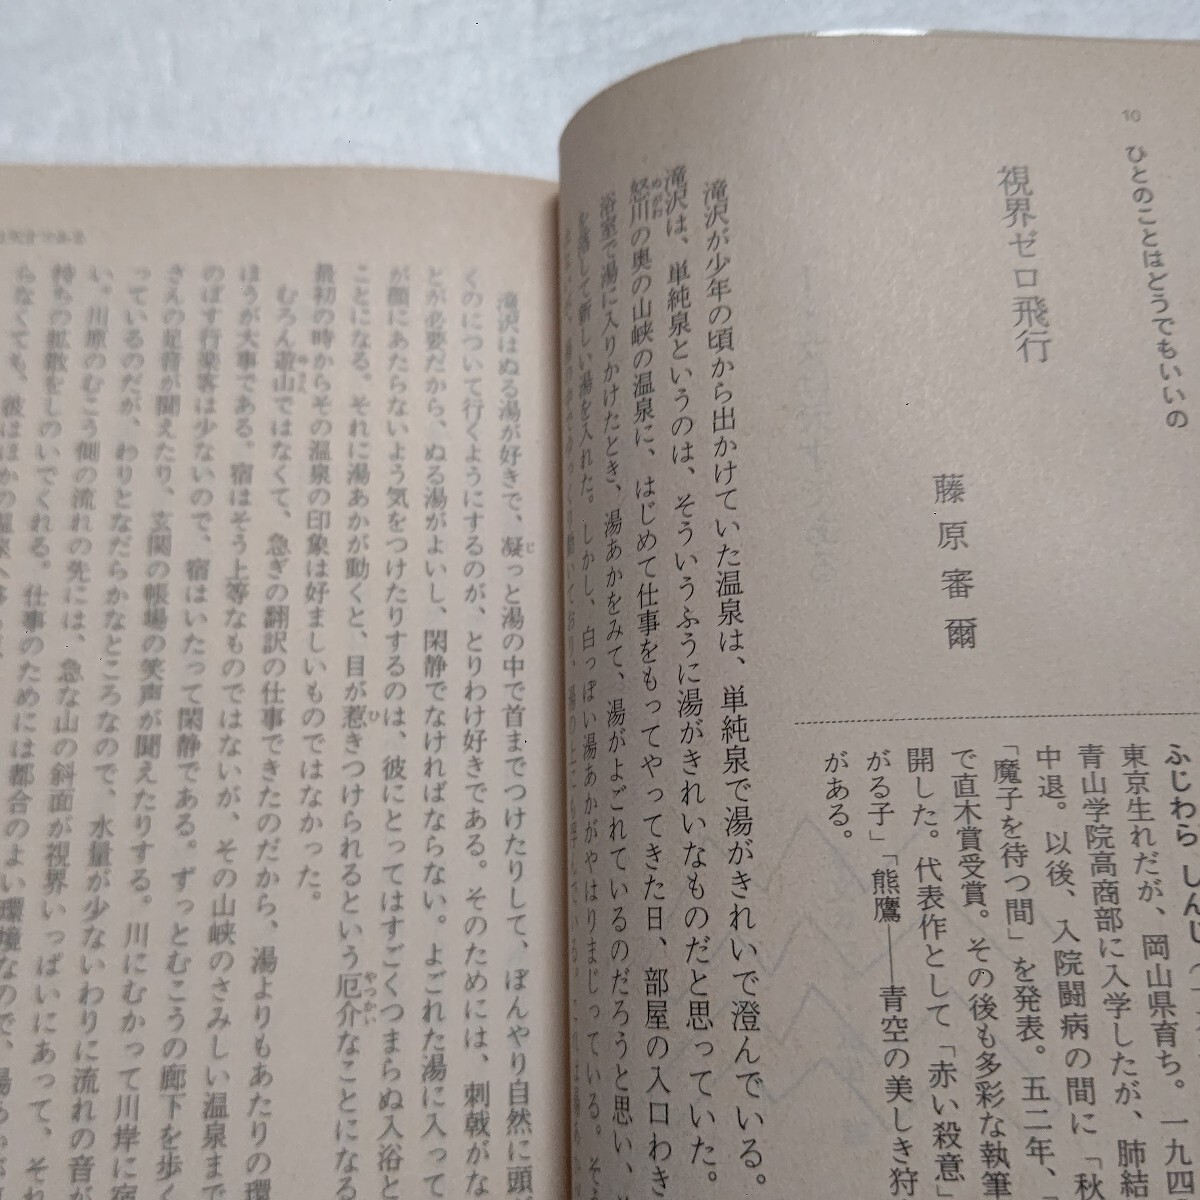 10
ひとのことはどうでもいいの
視界ゼロ飛行
藤原審爾
ふじわら しんじ
東京生れだが、岡山県育ち。一九四
青山学院高商部に入学したが、肺結
中退。以後、入院闘病の間に「秋
「魔子を待つ間」を発表。五二年、
で直木賞受賞。その後も多彩な執筆
開した。代表作として「赤い殺意」
がる子」「熊鷹――青空の美しき狩
がある。
滝沢が少年の頃から出かけていた温泉は、単純泉で湯がきれいで澄んでいる。
滝沢は、単純泉というのは、そういうふうに湯がきれいなものだと思っていた。
怒川の奥の山峡の温泉に、はじめて仕事をもってやってきた日、部屋の入口わき
浴室で湯に入りかけたとき、湯あかをみて、湯がよごれているのだろうと思い、
を落して新しい湯を入れた。しかし、白っぽい湯あかがやはりまじっている。
滝沢はぬる湯が好きで、凝っと湯の中で首までつけたりして、ぼんやり自然に頭が
くのについて行くようにするのが、とりわけ好きである。そのためには、刺戟がな
とが必要だから、ぬる湯がよいし、閑静でなければならない。よごれた湯に入って
が顔にあたらないよう気をつけたりするのは、彼にとってはすごくつまらぬ入浴と
ことになる。それに湯あかが動くと、目が惹きつけられるという厄介なことになる
最初の時からその温泉の印象は好ましいものではなかった。
むろん遊山ではなくて、急ぎの翻訳の仕事できたのだから、湯よりもあたりの環
ほうが大事である。宿はそう上等なものではないが、その山峡のさみしい温泉まで
のばす行楽客は少ないので、宿はいたって閑静である。ずっとむこうの廊下を歩く
さんの足音が聞えたり、玄関の帳場の笑声が聞えたりする。川にむかって川岸に宿
っているのだが、わりとなだらかなところなので、水量が少ないわりに流れの音が
い。川原のむこう側の流れの先には、急な山の斜面が視界いっぱいにあって、それ
持ちの拡散をしのいでくれる。仕事のためには都合のよい環境なので、
らなくても、彼はほかの温泉へ